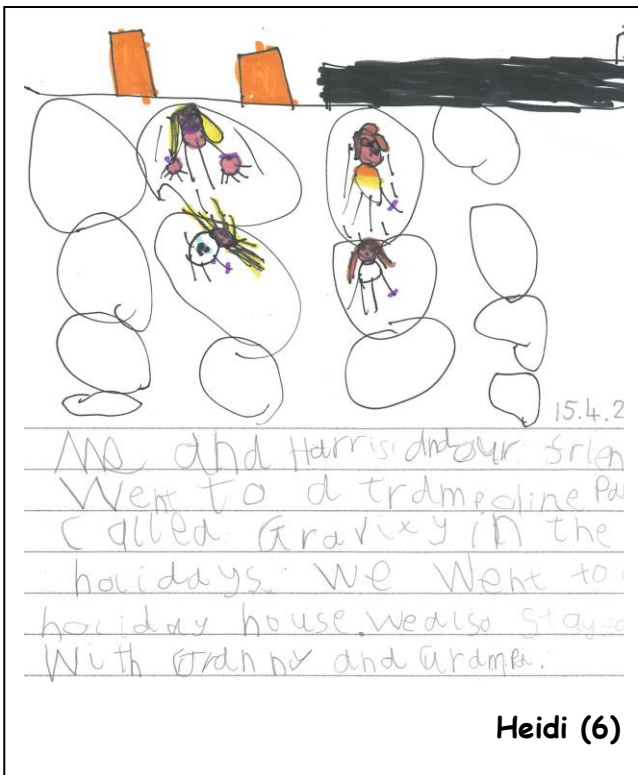 15.4.2
Me and Harris and our frien
Went to a trampoline Pa
Called Gravixy in the
holidays. We Went to
holiday house. We also Stayed
With Granny and Grampa.
Heidi (6)